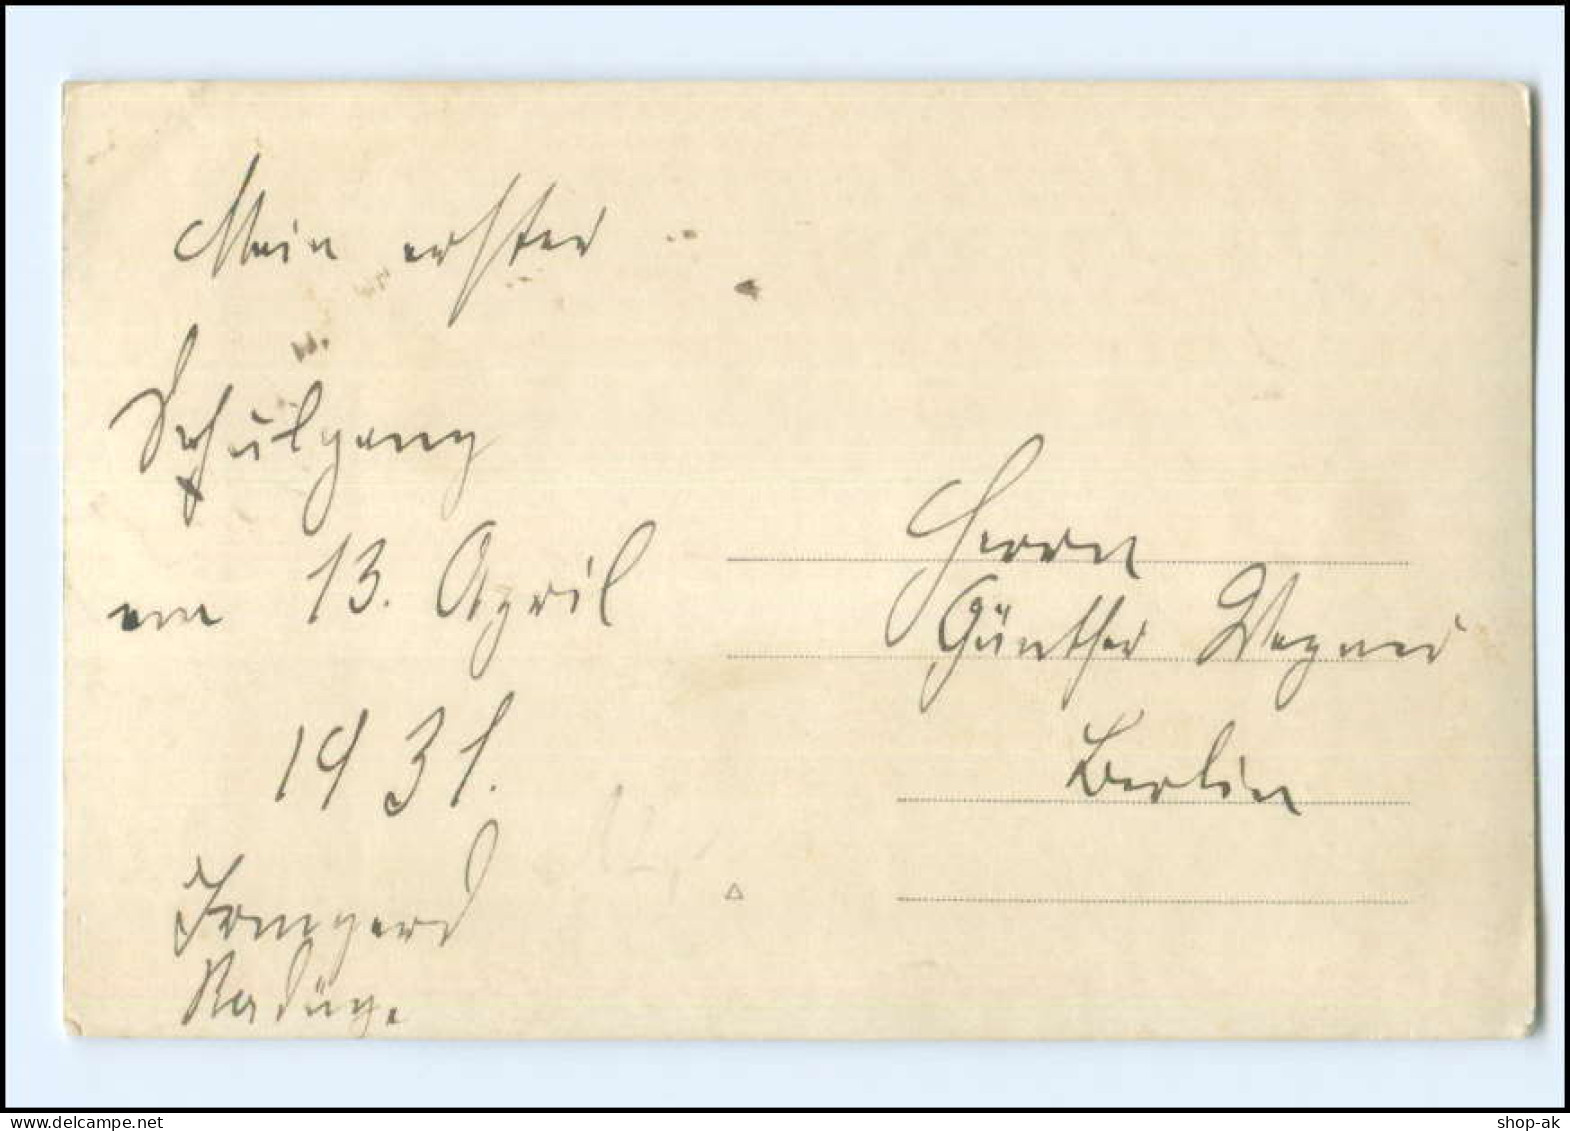 Mein erster
Schulgang
am 13. April
1931.
Irmgard
Radüg.
Herrn
Günther Wegner
Berlin
www.delcampe.net
shop-ak